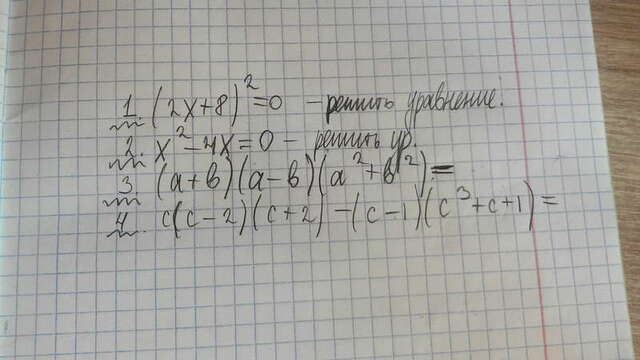 1. (2x+8)²=0 – решить уравнение.
2. x²-4x=0 – решить ур.
3 (а+в)(а-в)(а²+в²)=
4. c(c-2)(c+2)-(c-1)(c³+c+1)=